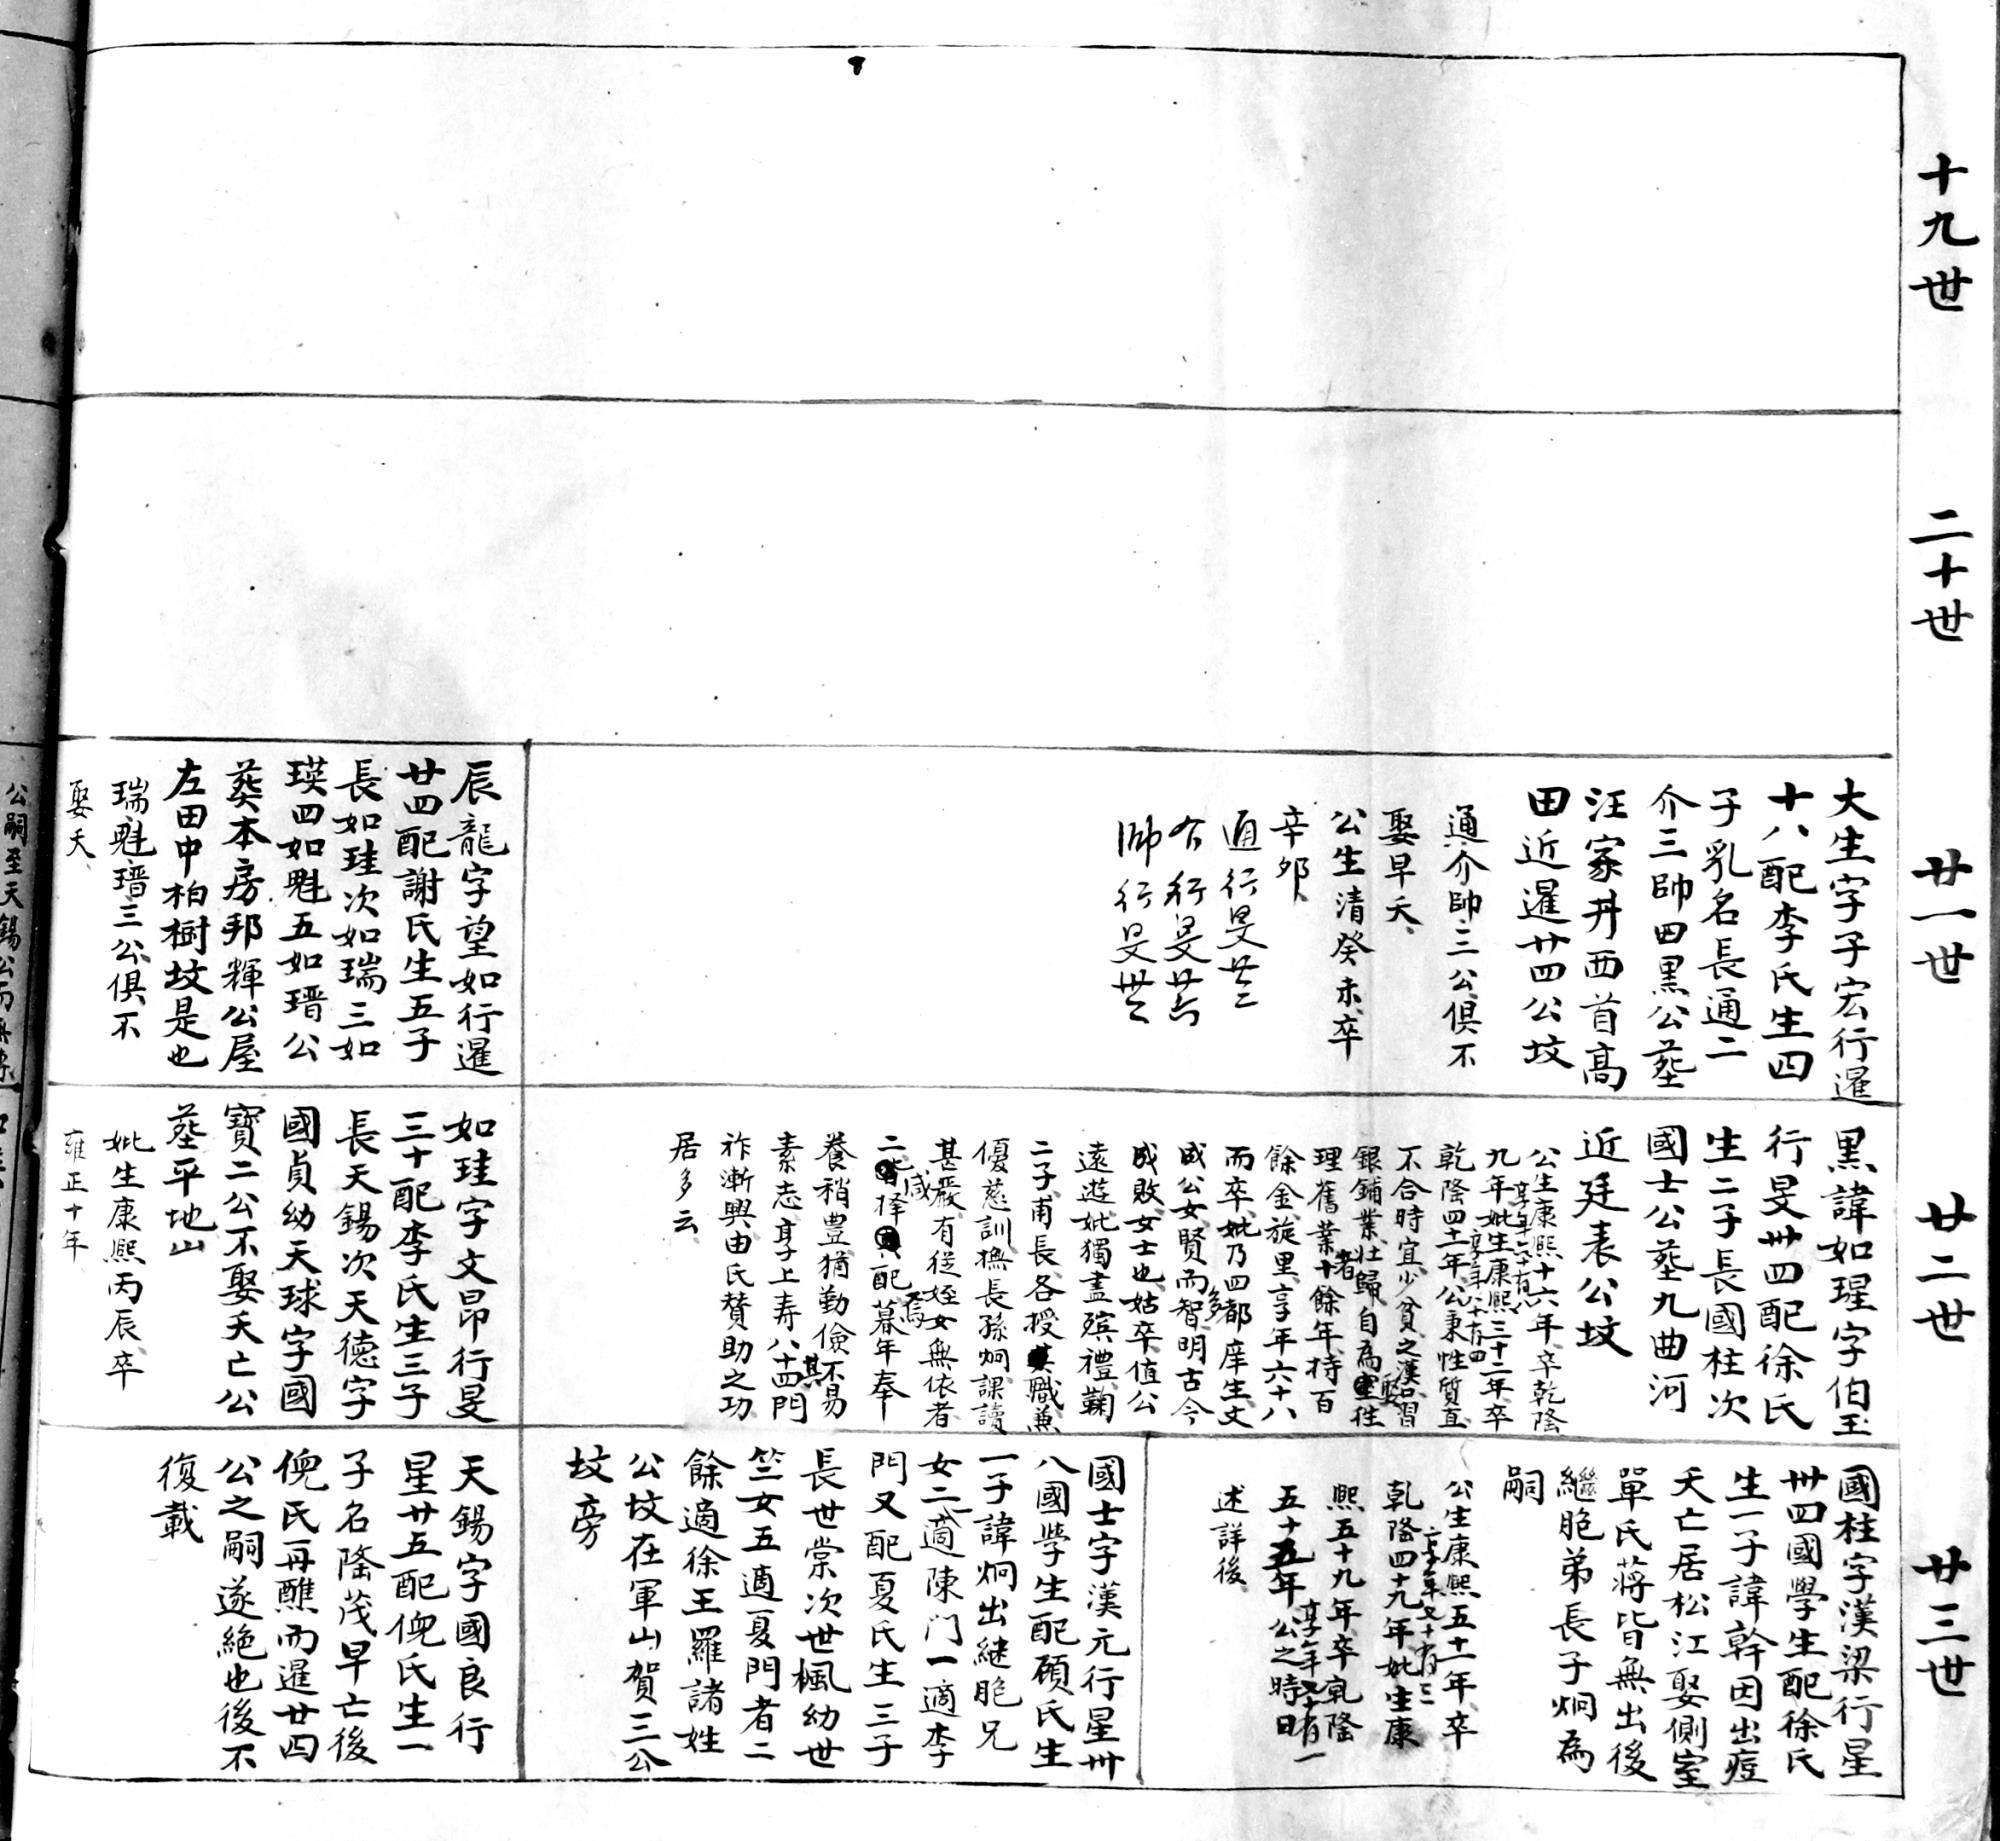 十九世
二十世
廿一世
大生字子宏行暹
十八配李氏生四
子乳名長通二
介三帥四黑公塟
汪家丼西首高
田近暹廿四公坟
通介帥三公俱不
娶早夭
公生清癸未卒
辛卯
通行旻廿二
介行旻廿
帥行旻
辰龍字望如行暹
廿四配謝氏生五子
長如珪次如瑞三如
瑛四如魁五如瑨公
葬本房邦輝公屋
左田中柏樹坟是也
瑞魁瑨三公俱不
娶夭
廿二世
黑諱如瑆字伯玉
行旻卅四配徐氏
生二子長國柱次
國士公塟九曲河
近廷表公坟
公生康熙十六年卒乾隆
九年妣生康熙三十二年卒
享年六十有八
乾隆四十一年公秉性質直
享年八十有四
不合時宜少貧之漢口習
銀鋪業壯歸自為室往
娶
理舊業十餘年持百
者
餘金旋里享年六十八
而卒妣乃四都庠生文
成公女賢而智明古今
多
成敗女士也姑卒值公
遠遊妣獨盡殯禮鞠
二子甫長各授其職兼
優慈訓撫長孫炯課讀
甚嚴有從姪女無依者
二擇配暮年奉
咸
焉
養稍豊猶勤儉不易
其
素志享上寿八十四門
祚漸興由氏賛助之功
居多云
如珪字文昂行旻
三十配李氏生三子
長天錫次天德字
國貞幼天球字國
寶二公不娶夭亡公
塟平地山
妣生康熙丙辰卒
雍正十年
廿三世
國柱字漢梁行星
卅四國學生配徐氏
生一子諱幹因出痘
夭亡居松江娶側室
單氏蔣皆無出後
繼胞弟長子炯為
嗣
公生康熙五十一年卒
享年七十有三
乾隆四十九年妣生康
熙五十九年卒乾隆
五十五年公之時日
享年七十有一
述詳後
國士字漢元行星卅
八國學生配顾氏生
一子諱炯出継胞兄
女二適陳门一適李
門又配夏氏生三子
長世棠次世楓幼世
竺女五適夏門者二
餘適徐王羅諸姓
公坟在軍山賀三公
坟旁
天錫字國良行
星廿五配倪氏生一
子名隆茂早亡後
倪氏再醮而暹廿四
公之嗣遂絶也後不
復載
公嗣至天錫公而無